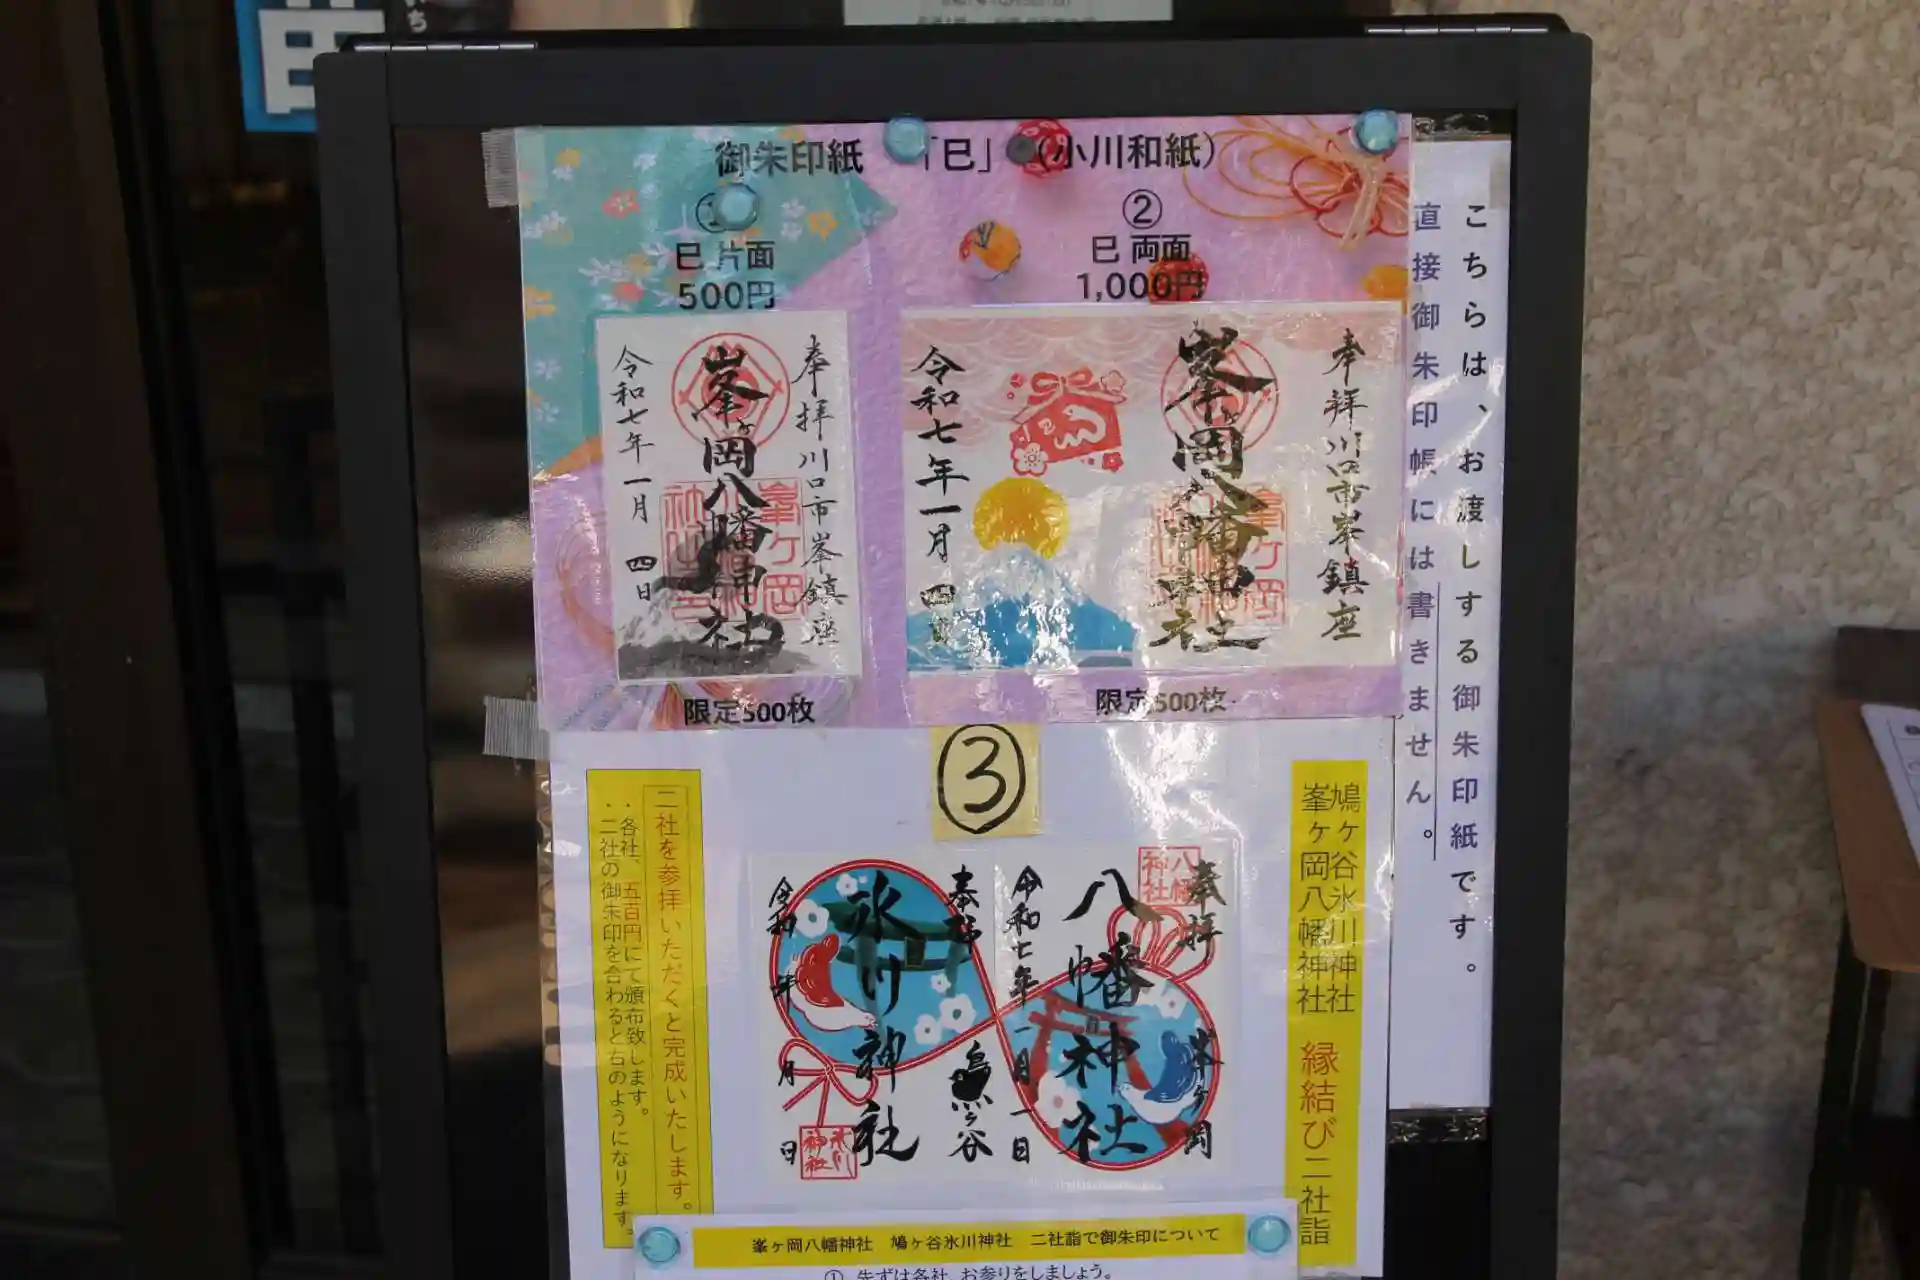 御朱印紙 「巳」 (小川和紙)
①
巳 片面
500円
②
巳 両面
1,000円
奉拝 川口市峯鎮座
峯ヶ岡八幡神社
令和七年一月 四日
奉拝 川口市峯鎮座
峯ヶ岡八幡神社
令和七年一月 四日
限定500枚
限定500枚
こちらは、お渡しする御朱印紙です。
直接御朱印帳には書きません。
③
鳩ヶ谷氷川神社
峯ヶ岡八幡神社
縁結び二社詣
奉拝 峯ヶ岡
八幡神社
八幡神社
令和七年一月一日
奉拝 鳩ヶ谷
氷川神社
氷川神社
令和 年 月 日
二社を参拝いただくと完成いたします。
・各社、五百円にて頒布致します。
・二社の御朱印を合わると右のようになります。
峯ヶ岡八幡神社 鳩ヶ谷氷川神社 二社詣で御朱印について
① 先ずは各社、お参りをしましょう。